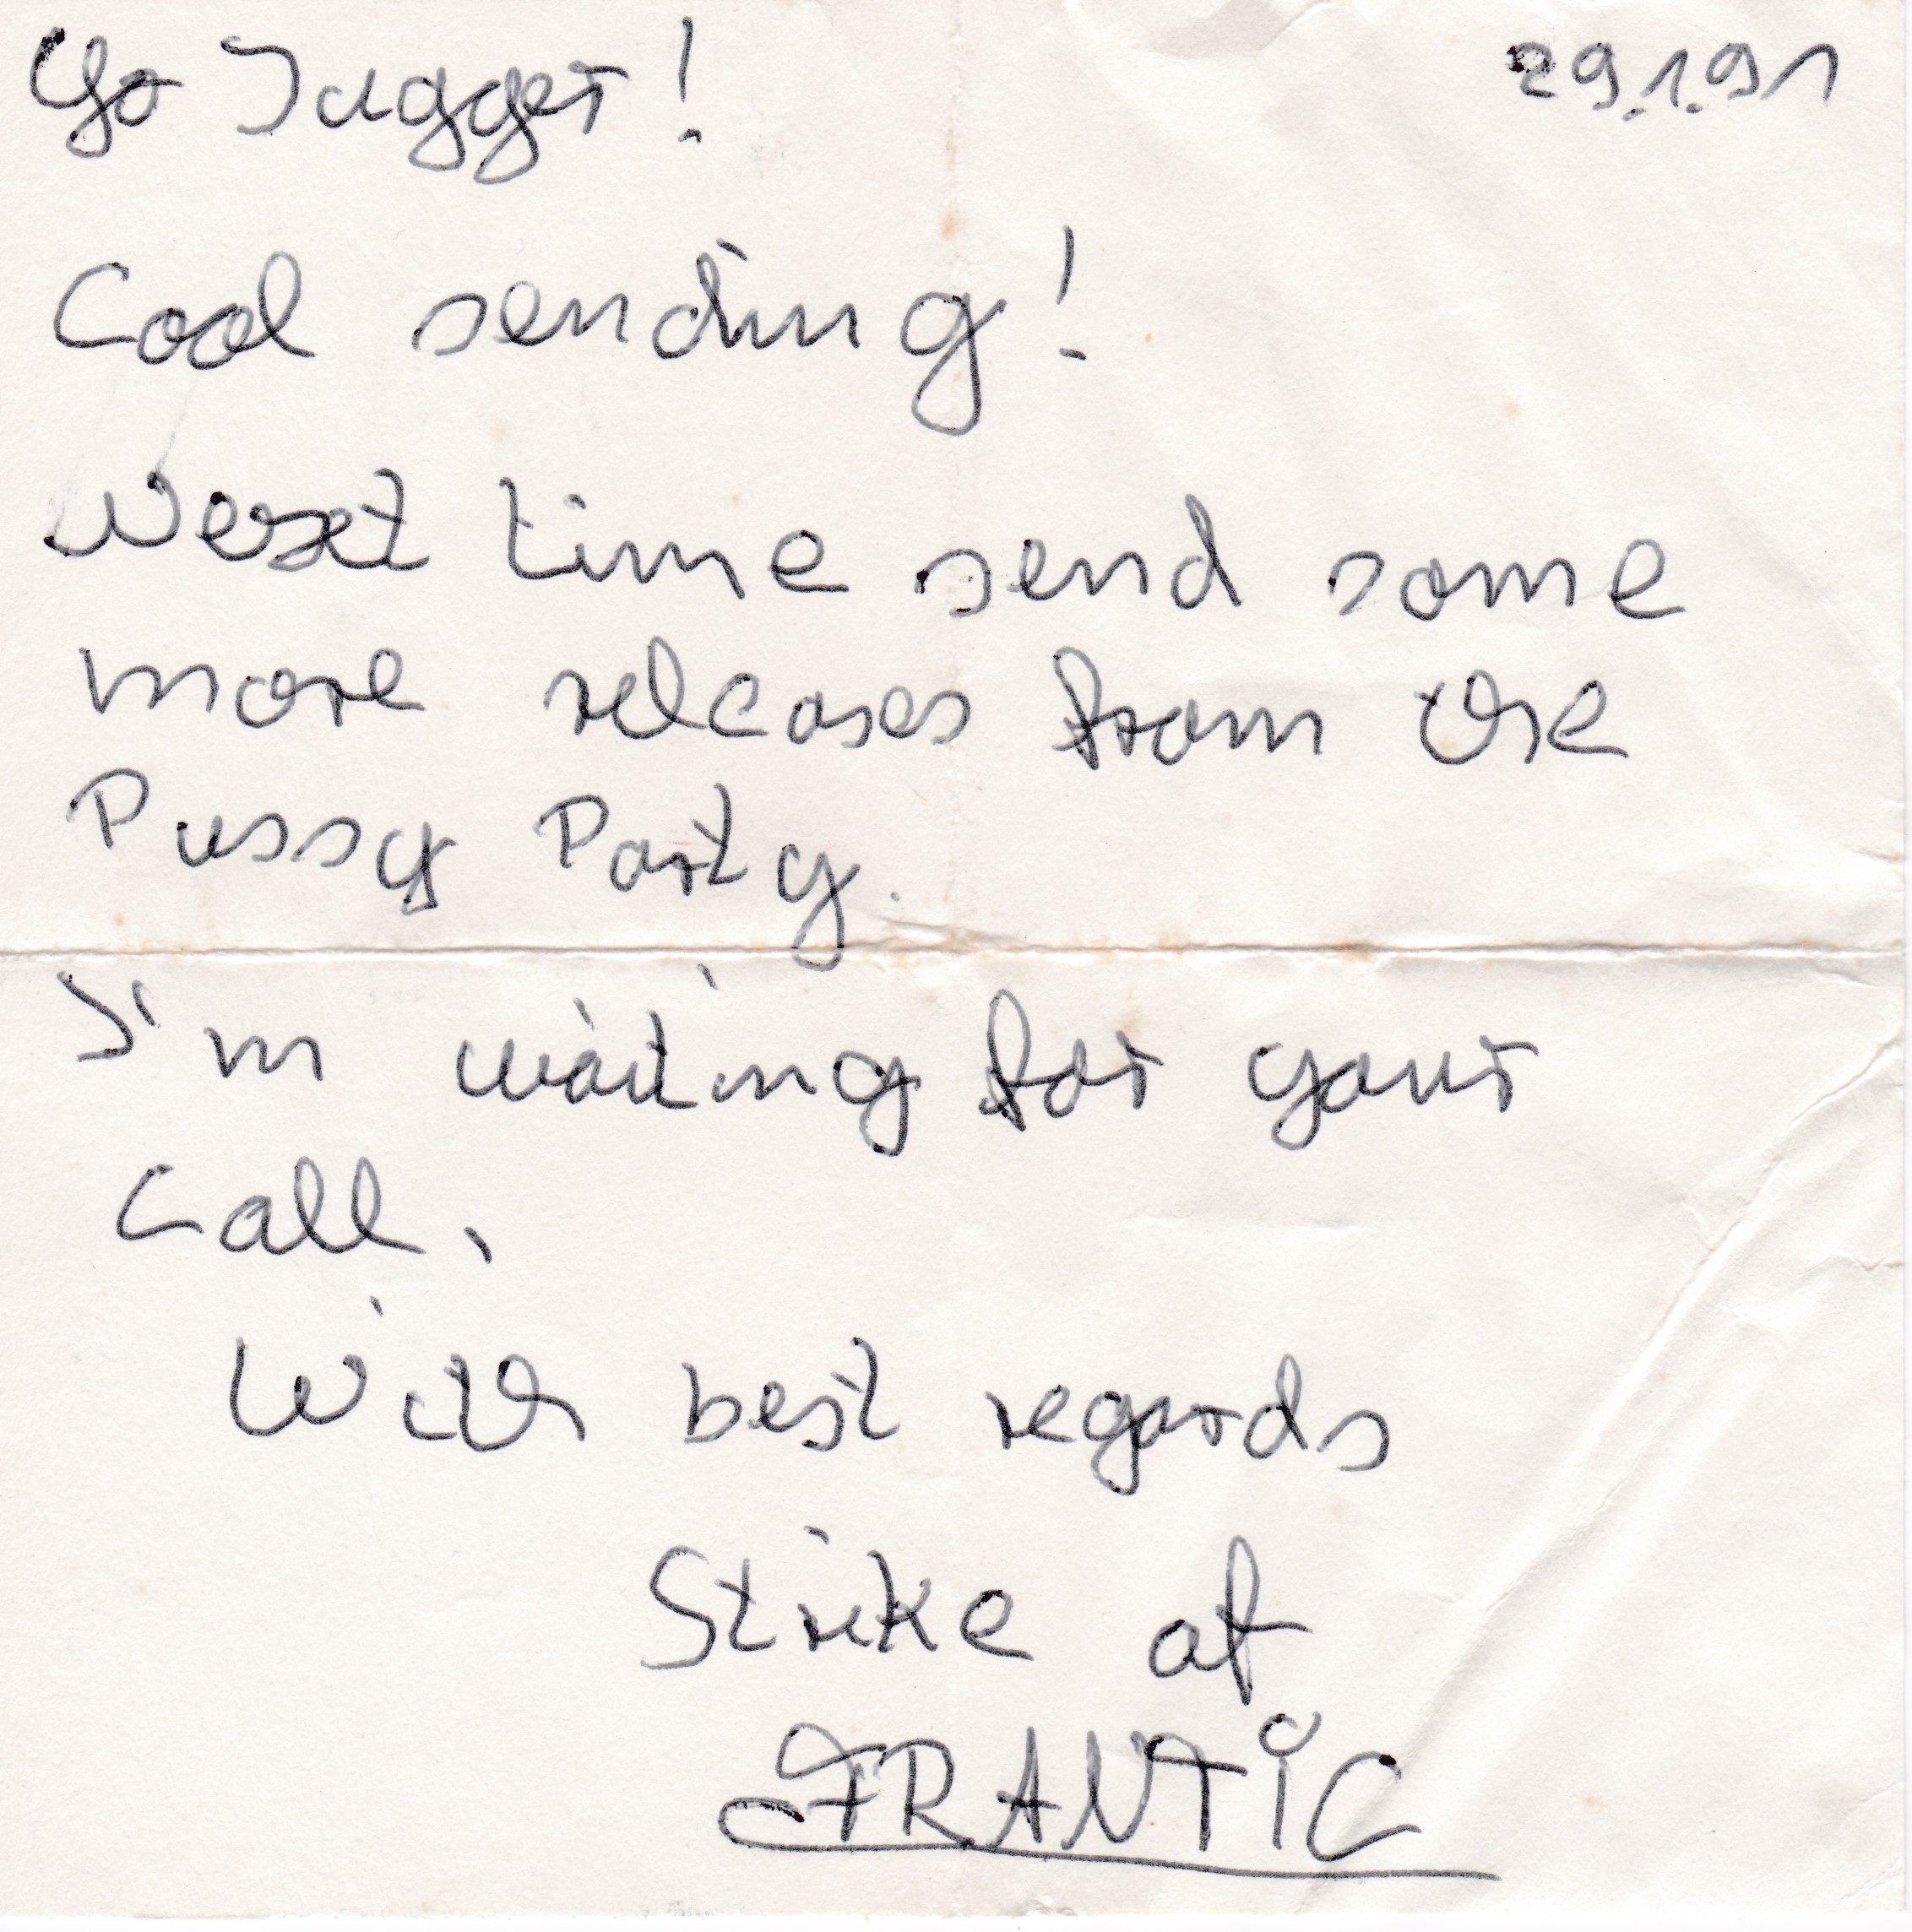 Yo Jugger! 29.1.91
Cool sending!
Next time send some
more releases from the
Pussy Party.
I'm waiting for your
call,
With best regards
Strike of
FRANTiC